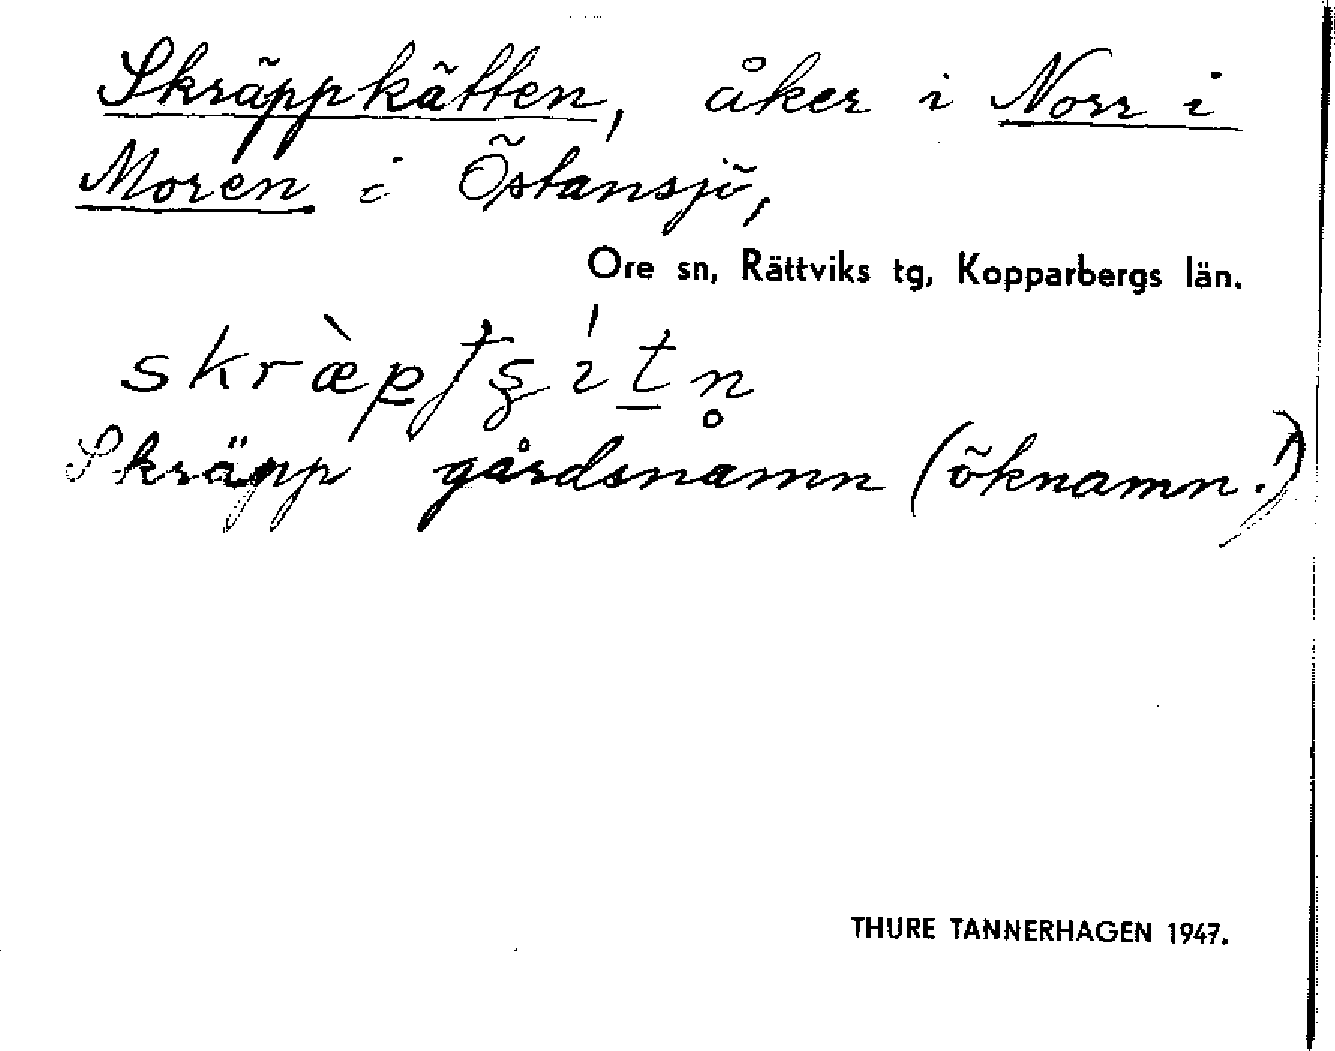 Skräppkätten, åker i Norr i
Moren i Östansjö,
Ore sn, Rättviks tg, Kopparbergs län.
Skräpp gårdsnamn (öknamn!)
THURE TANNERHAGEN 1947.